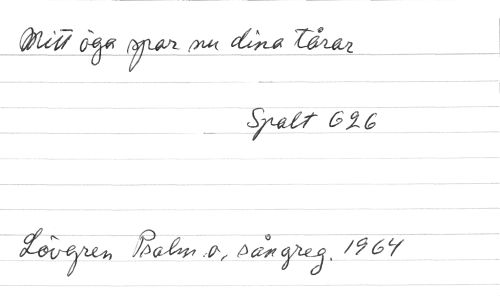 Mitt öga spar nu dina tårar
Spalt 626
Lövgren Psalm. o, sångreg. 1964